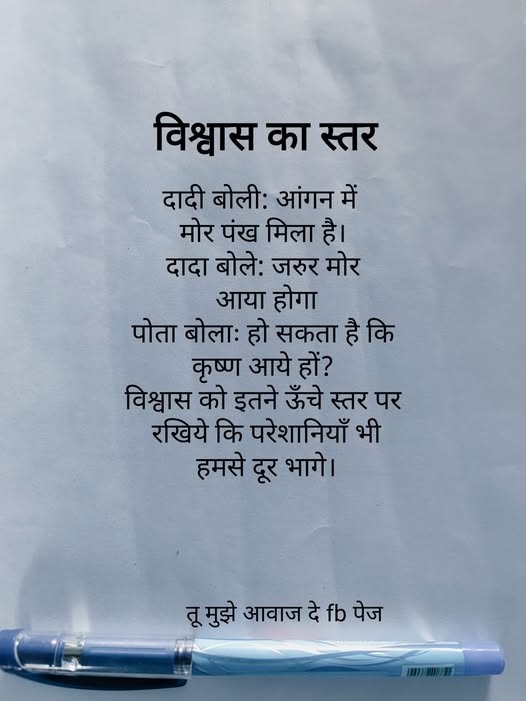 विश्वास का स्तर
दादी बोली: आंगन में
मोर पंख मिला है।
दादा बोले: जरुर मोर
आया होगा
पोता बोला: हो सकता है कि
कृष्ण आये हों?
विश्वास को इतने ऊँचे स्तर पर
रखिये कि परेशानियाँ भी
हमसे दूर भागे।
तू मुझे आवाज दे fb पेज